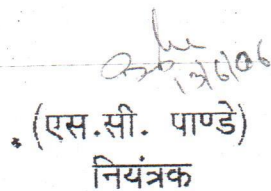 13/6/06
(एस.सी. पाण्डे)
नियंत्रक